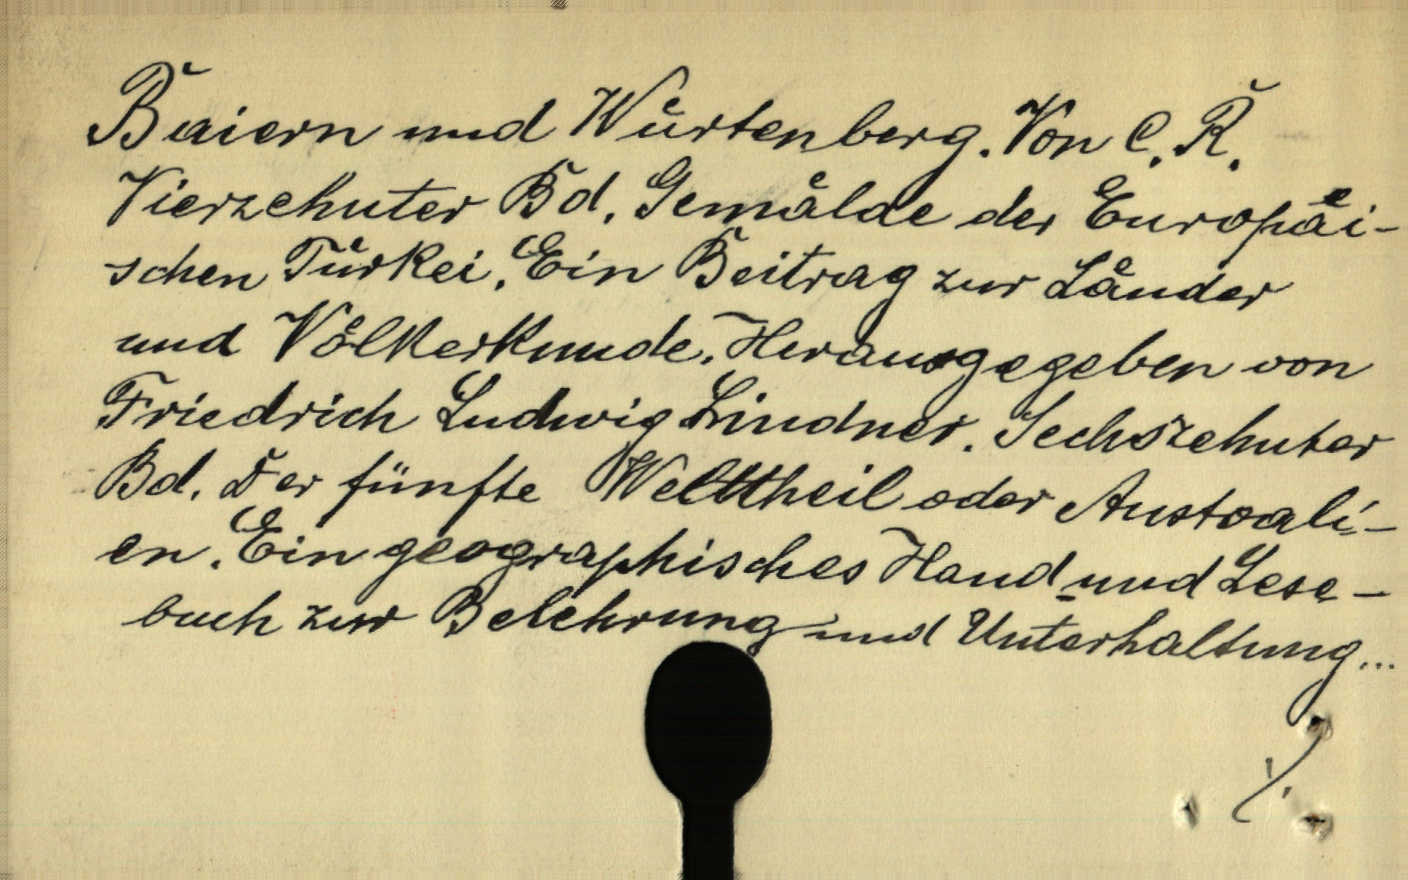 Baiern und Würtenberg. Von C. R.
Vierzehnter Bd. Gemälde der Europäi-
schen Türkei. Ein Beitrag zur Länder
und Völkerkunde. Herausgegeben von
Friedrich Ludwig Lindner. Sechszehnter
Bd. Der fünfte Welttheil oder Australi-
en. Ein geographisches Hand und Lese-
buch zur Belehrung und Unterhaltung...
·/.